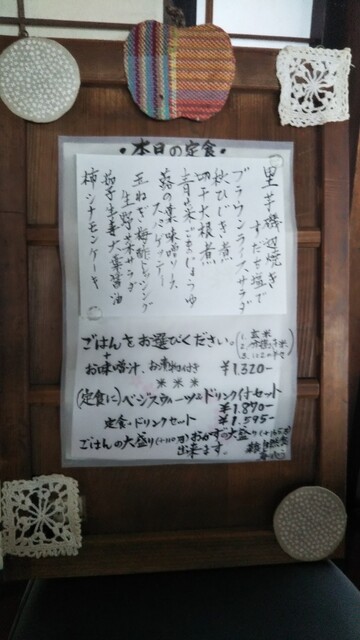 ・本日の定食・
里芋磯辺焼き
すだち塩で
ブラウンライスサラダ
秋ひじき煮
切干大根煮
青菜ごまじょうゆ
蕗の葉味噌ソース
スパゲッティー
玉ねぎ梅酢ドレッシング
生野菜サラダ
茄子生姜大葉醤油
柿シナモンケーキ
ごはんをお選びください。
1. 玄米
2. 分搗き米
+
お味噌汁、お漬物付き ¥1.320-
米 米 米
(定食に)ベジスウィーツ+ドリンク付セット
¥1.870-
定食・ドリンクセット ¥1.595-
ごはんの大盛り(+110円)おかずの大盛り
出来ます。